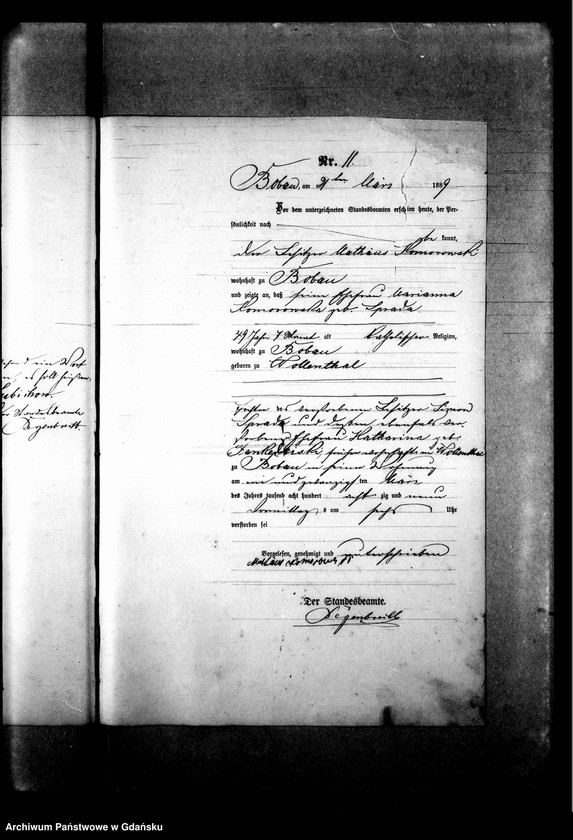 Nr. 11.
Bobau, am 21ten März 1889
Vor dem unterzeichneten Standesbeamten erschien heute, der Per-
sönlichkeit nach
kannt,
der Besitzer Mathäus Komorowski
wohnhaft zu Bobau
und zeigte an, daß seine Ehefrau Marianna
Komorowska geb. Sprada
49 Jahr 7 Monat alt katholischer Religion,
wohnhaft zu Bobau
geboren zu Wollenthal
Tochter des verstorbenen Besitzer Simon
Sprada und dessen ebenfalls ver-
storbenen Ehefrau Katharina geb.
früher wohnhaft in Wollenthal
zu Bobau in seiner Wohnung
am ein und zwanzigsten März
des Jahres tausend acht hundert acht zig und neun
Vormittags um sechs Uhr
verstorben sei
Vorgelesen, genehmigt und unterschrieben
Mathäus Komorowski
Der Standesbeamte.
Degenbreitt
Archiwum Państwowe w Gdańsku